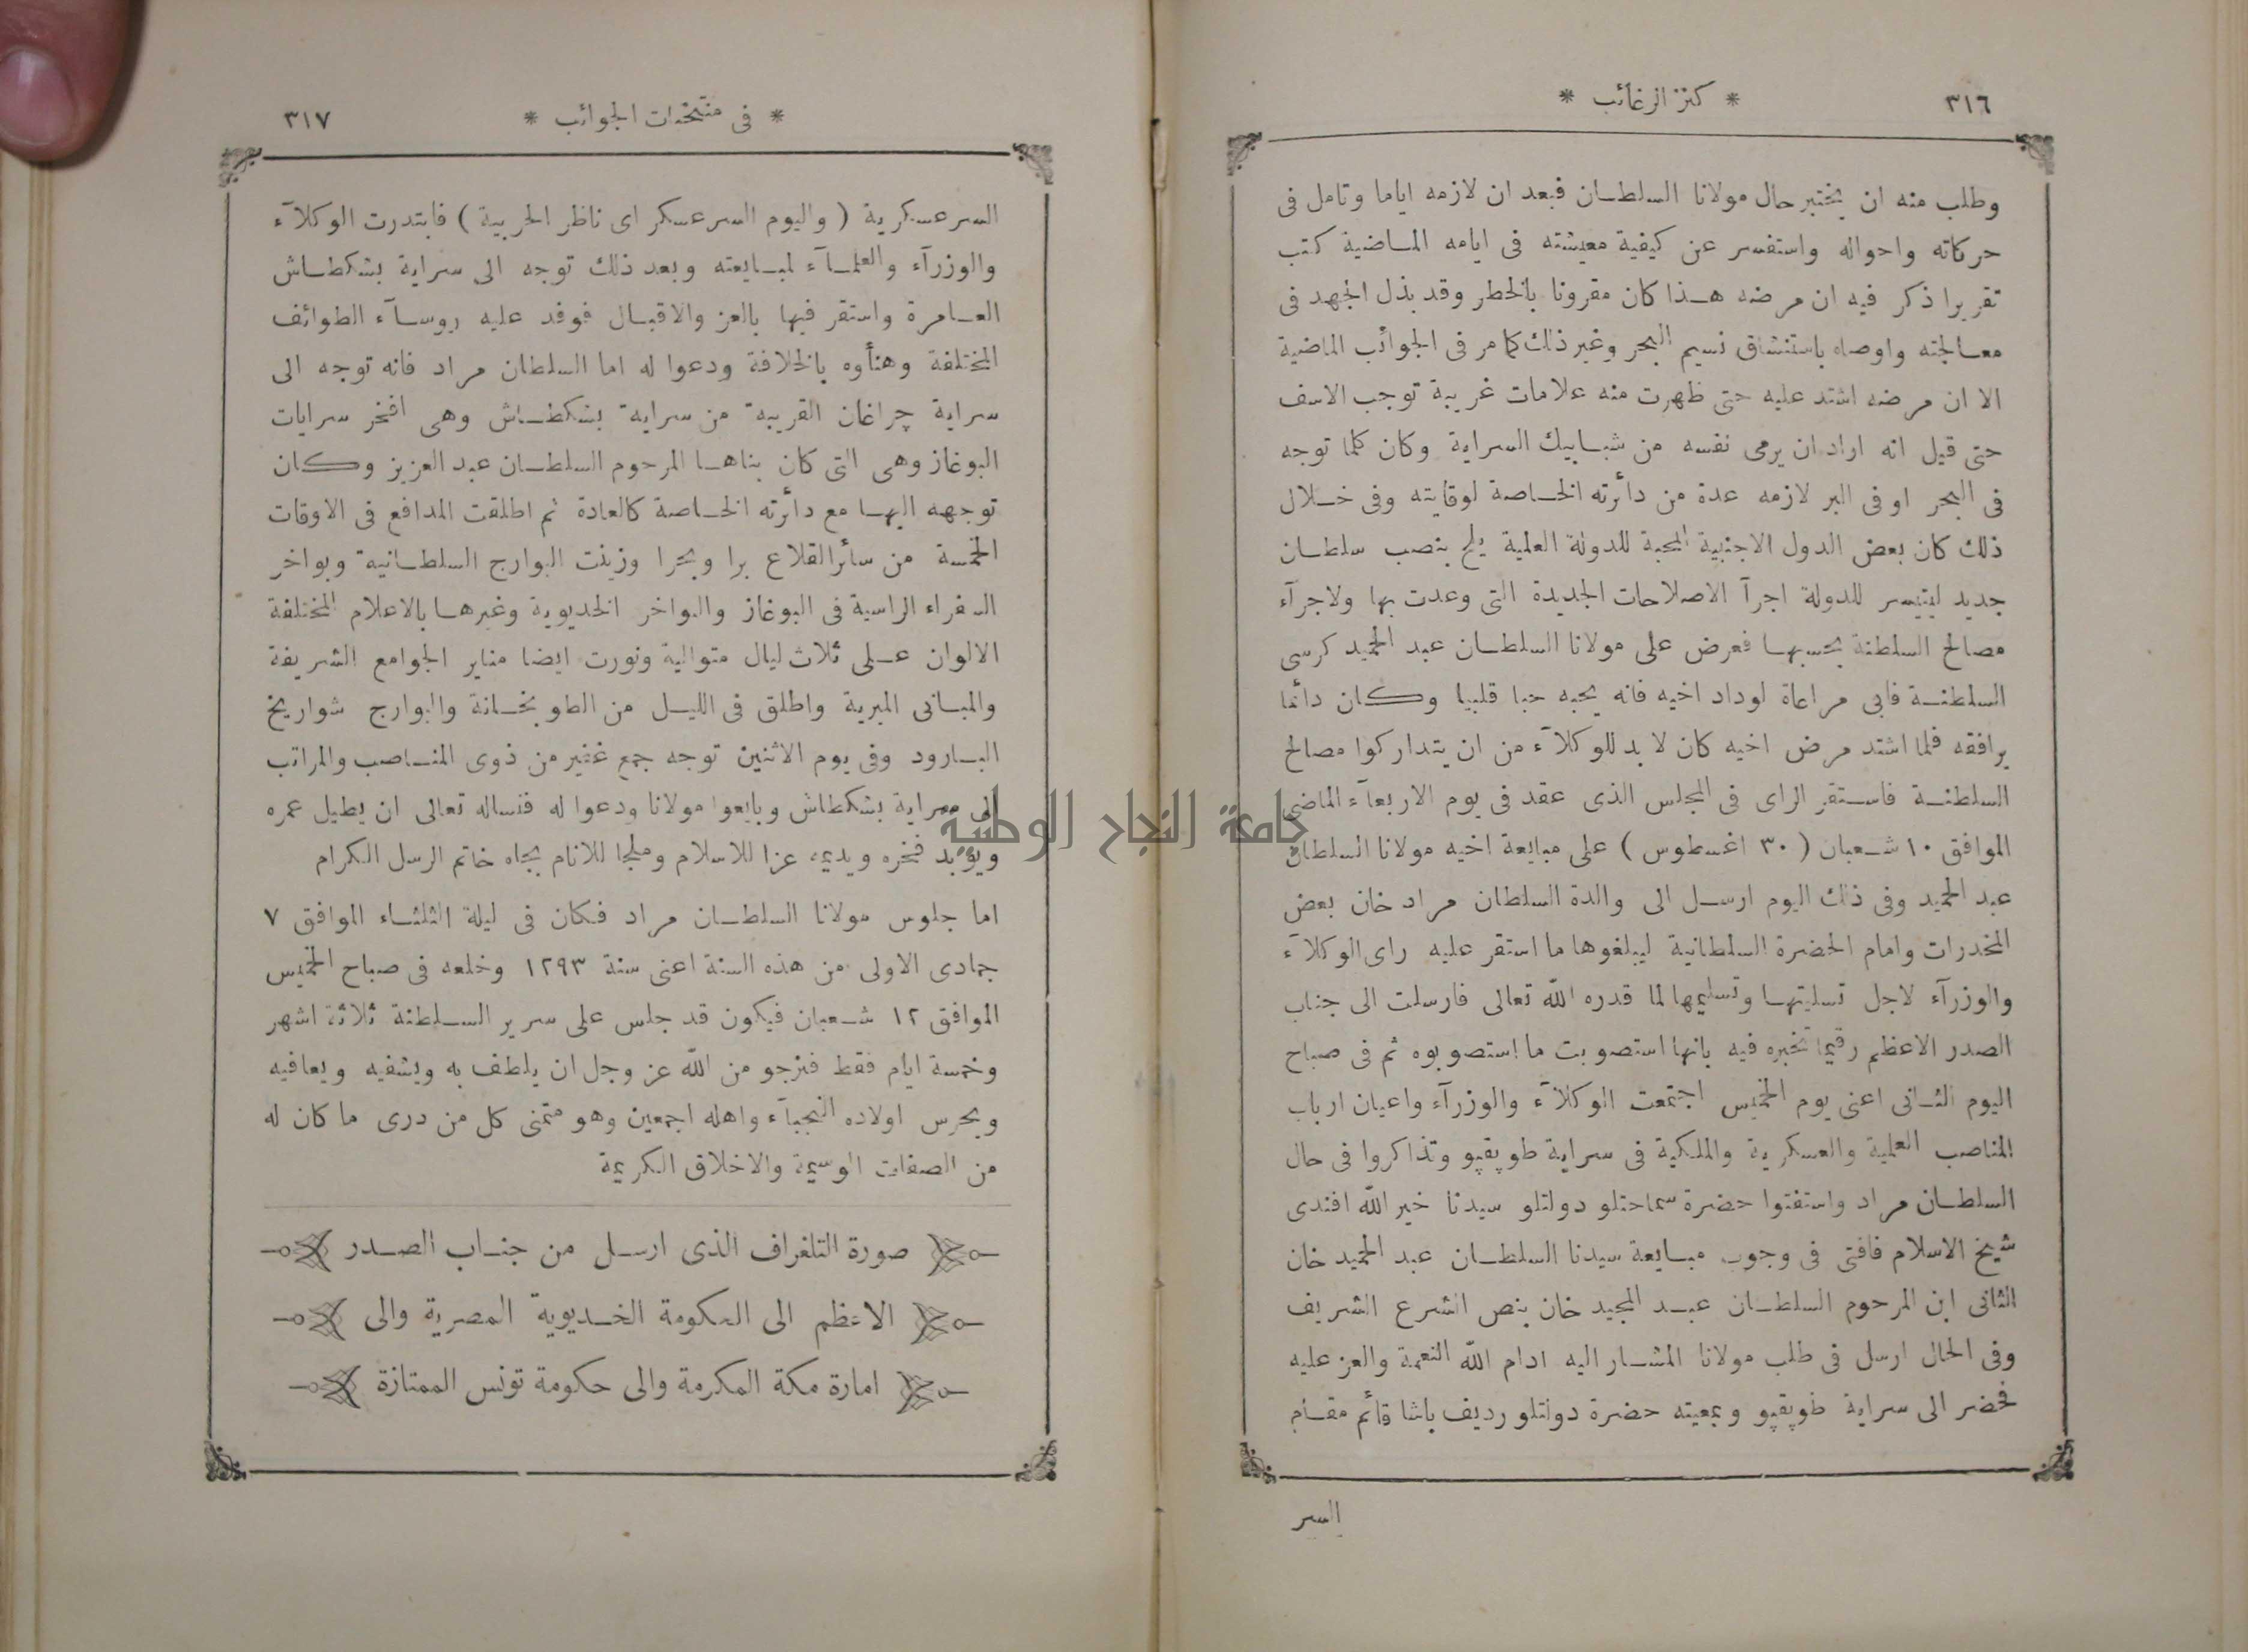 ٣١٦
* كنز الرغائب *
وطلب منه ان يختبر حال مولانا السلطان فبعد ان لازمه اياما وتامل فى
حركاته واحواله واستفسر عن كيفية معيشته فى ايامه الماضية كتب
تقريرا ذكر فيه ان مرضه هذا كان مقرونا بالخطر وقد بذل الجهد فى
معالجته واوصاه باستنشاق نسيم البحر وغير ذلك كما مر فى الجوائب الماضية
الا ان مرضه اشتد عليه حتى ظهرت منه علامات غريبة توجب الاسف
حتى قيل انه اراد ان يرمى نفسه من شبابيك السراية وكان كلما توجه
فى البحر او فى البر لازمه عدة من دائرته الخاصة لوقايته وفى خلال
ذلك كان بعض الدول الاجنبية المحبة للدولة العلية يلح بنصب سلطان
جديد ليتيسر للدولة اجرآ الاصلاحات الجديدة التى وعدت بها ولاجرآء
مصالح السلطنة بحسبها فعرض على مولانا السلطان عبد الحميد كرسى
السلطنة فابى مراعاة لوداد اخيه فانه يحبه حبا قلبيا وكان دائما
يرافقه فلما اشتد مرض اخيه كان لا بد للوكلآء من ان يتداركوا مصالح
السلطنة فاستقر الراى فى المجلس الذى عقد فى يوم الاربعآء الماضى
الموافق ١٠ شعبان ( ٣٠ اغسطوس ) على مبايعة اخيه مولانا السلطان
عبد الحميد وفى ذلك اليوم ارسل الى والدة السلطان مراد خان بعض
المخدرات وامام الحضرة السلطانية ليبلغوها ما استقر عليه راى الوكلآء
والوزرآء لاجل تسليتها وتسليمها لما قدره الله تعالى فارسلت الى جناب
الصدر الاعظم رقيما تخبره فيه بانها استصوبت ما استصوبوه ثم فى صباح
اليوم الثانى اعنى يوم الخميس اجتمعت الوكلآء والوزرآء واعيان ارباب
المناصب العلمية والعسكرية والملكية فى سراية طوپقپو وتذاكروا فى حال
السلطان مراد واستفتوا حضرة سماحتلو دولتلو سيدنا خير الله افندى
شيخ الاسلام فافتى فى وجوب مبايعة سيدنا السلطان عبد الحميد خان
الثانى ابن المرحوم السلطان عبد المجيد خان بنص الشرع الشريف
وفى الحال ارسل فى طلب مولانا المشار اليه ادام الله النعمة والعز عليه
فحضر الى سراية طوپقپو وبمعيته حضرة دولتلو رديف باشا قائم مقام
السر
* فى منتخبات الجوائب *
٣١٧
السرعسكرية ( واليوم السرعسكر اى ناظر الحربية ) فابتدرت الوكلآء
والوزرآء والعلمآء لمبايعته وبعد ذلك توجه الى سراية بشكطاش
العامرة واستقر فيها بالعز والاقبال فوفد عليه روسآء الطوائف
المختلفة وهنأوه بالخلافة ودعوا له اما السلطان مراد فانه توجه الى
سراية چراغان القريبة من سراية بشكطاش وهى افخر سرايات
البوغاز وهى التى كان بناها المرحوم السلطان عبد العزيز وكان
توجهه اليها مع دائرته الخاصة كالعادة ثم اطلقت المدافع فى الاوقات
الخمسة من سائر القلاع برا وبحرا وزينت البوارج السلطانية وبواخر
السفراء الراسية فى البوغاز والبواخر الخديوية وغيرها بالاعلام المختلفة
الالوان على ثلاث ليال متوالية ونورت ايضا مناير الجوامع الشريفة
والمبانى الميرية واطلق فى الليل من الطوبخانة والبوارج شواريخ
البارود وفى يوم الاثنين توجه جمع غفير من ذوى المناصب والمراتب
الى سراية بشكطاش وبايعوا مولانا ودعوا له فنساله تعالى ان يطيل عمره
ويؤبد فخره ويديمه عزا للاسلام وملجا للانام بجاه خاتم الرسل الكرام
اما جلوس مولانا السلطان مراد فكان فى ليلة الثلثاء الموافق ٧
جمادى الاولى من هذه السنة اعنى سنة ١٢٩٣ وخلعه فى صباح الخميس
الموافق ١٢ شعبان فيكون قد جلس على سرير السلطنة ثلاثة اشهر
وخمسة ايام فقط فنرجو من الله عز وجل ان يلطف به ويشفيه ويعافيه
ويحرس اولاده النجبآء واهله اجمعين وهو متمنى كل من درى ما كان له
من الصفات الوسيمة والاخلاق الكريمة
صورة التلغراف الذى ارسل من جناب الصدر
الاعظم الى الحكومة الخديوية المصرية والى
امارة مكة المكرمة والى حكومة تونس الممتازة
جامعة النجاح الوطنية